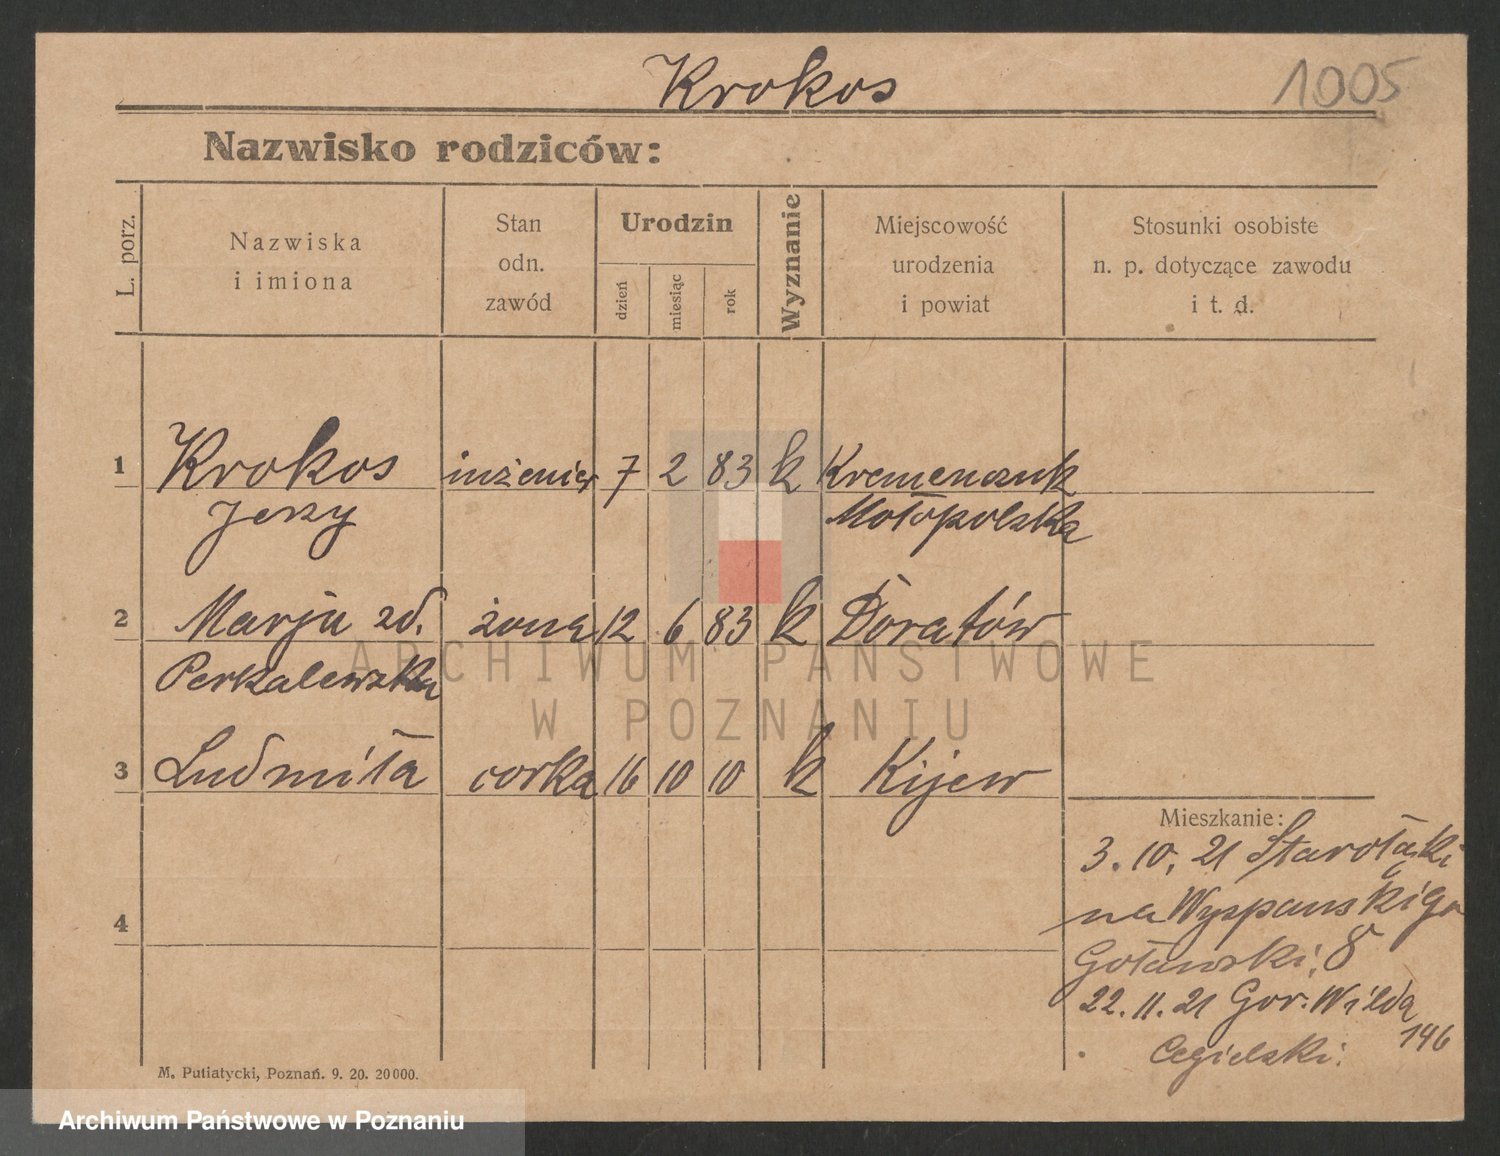 Krokos
1005
Nazwisko rodziców:
L. porz.
Nazwiska
i imiona
Stan
odn.
zawód
Urodzin
dzień
miesiąc
rok
Wyznanie
Miejscowość
urodzenia
i powiat
Stosunki osobiste
n. p. dotyczące zawodu
i t. d.
1 Krokos inżenier 7 2 83 k Kremenczuk
Jerzy Małopolska
2 Marja zd. żona 12 6 83 k
Perkalewska
3 Ludmiła corka 16 10 10 k Kijew
4
Mieszkanie:
3. 10. 21 Starołęcki
na Wyspanskigo
8
22. 11. 21 Gor. Wilda
146
Cegielski.
M. Putiatycki, Poznań. 9. 20. 20000.
ARCHIWUM PAŃSTWOWE
W POZNANIU
Archiwum Państwowe w Poznaniu